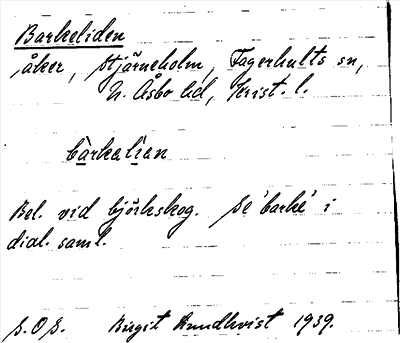 Barkeliden
åker, Stjärneholm, Fagerhults sn,
N. Åsbo hd, Krist. l.
bàrkalìen
Bel. vid björkskog. Se 'barke' i
dial. saml.
S.O.S. Birgit Rundkvist 1939.